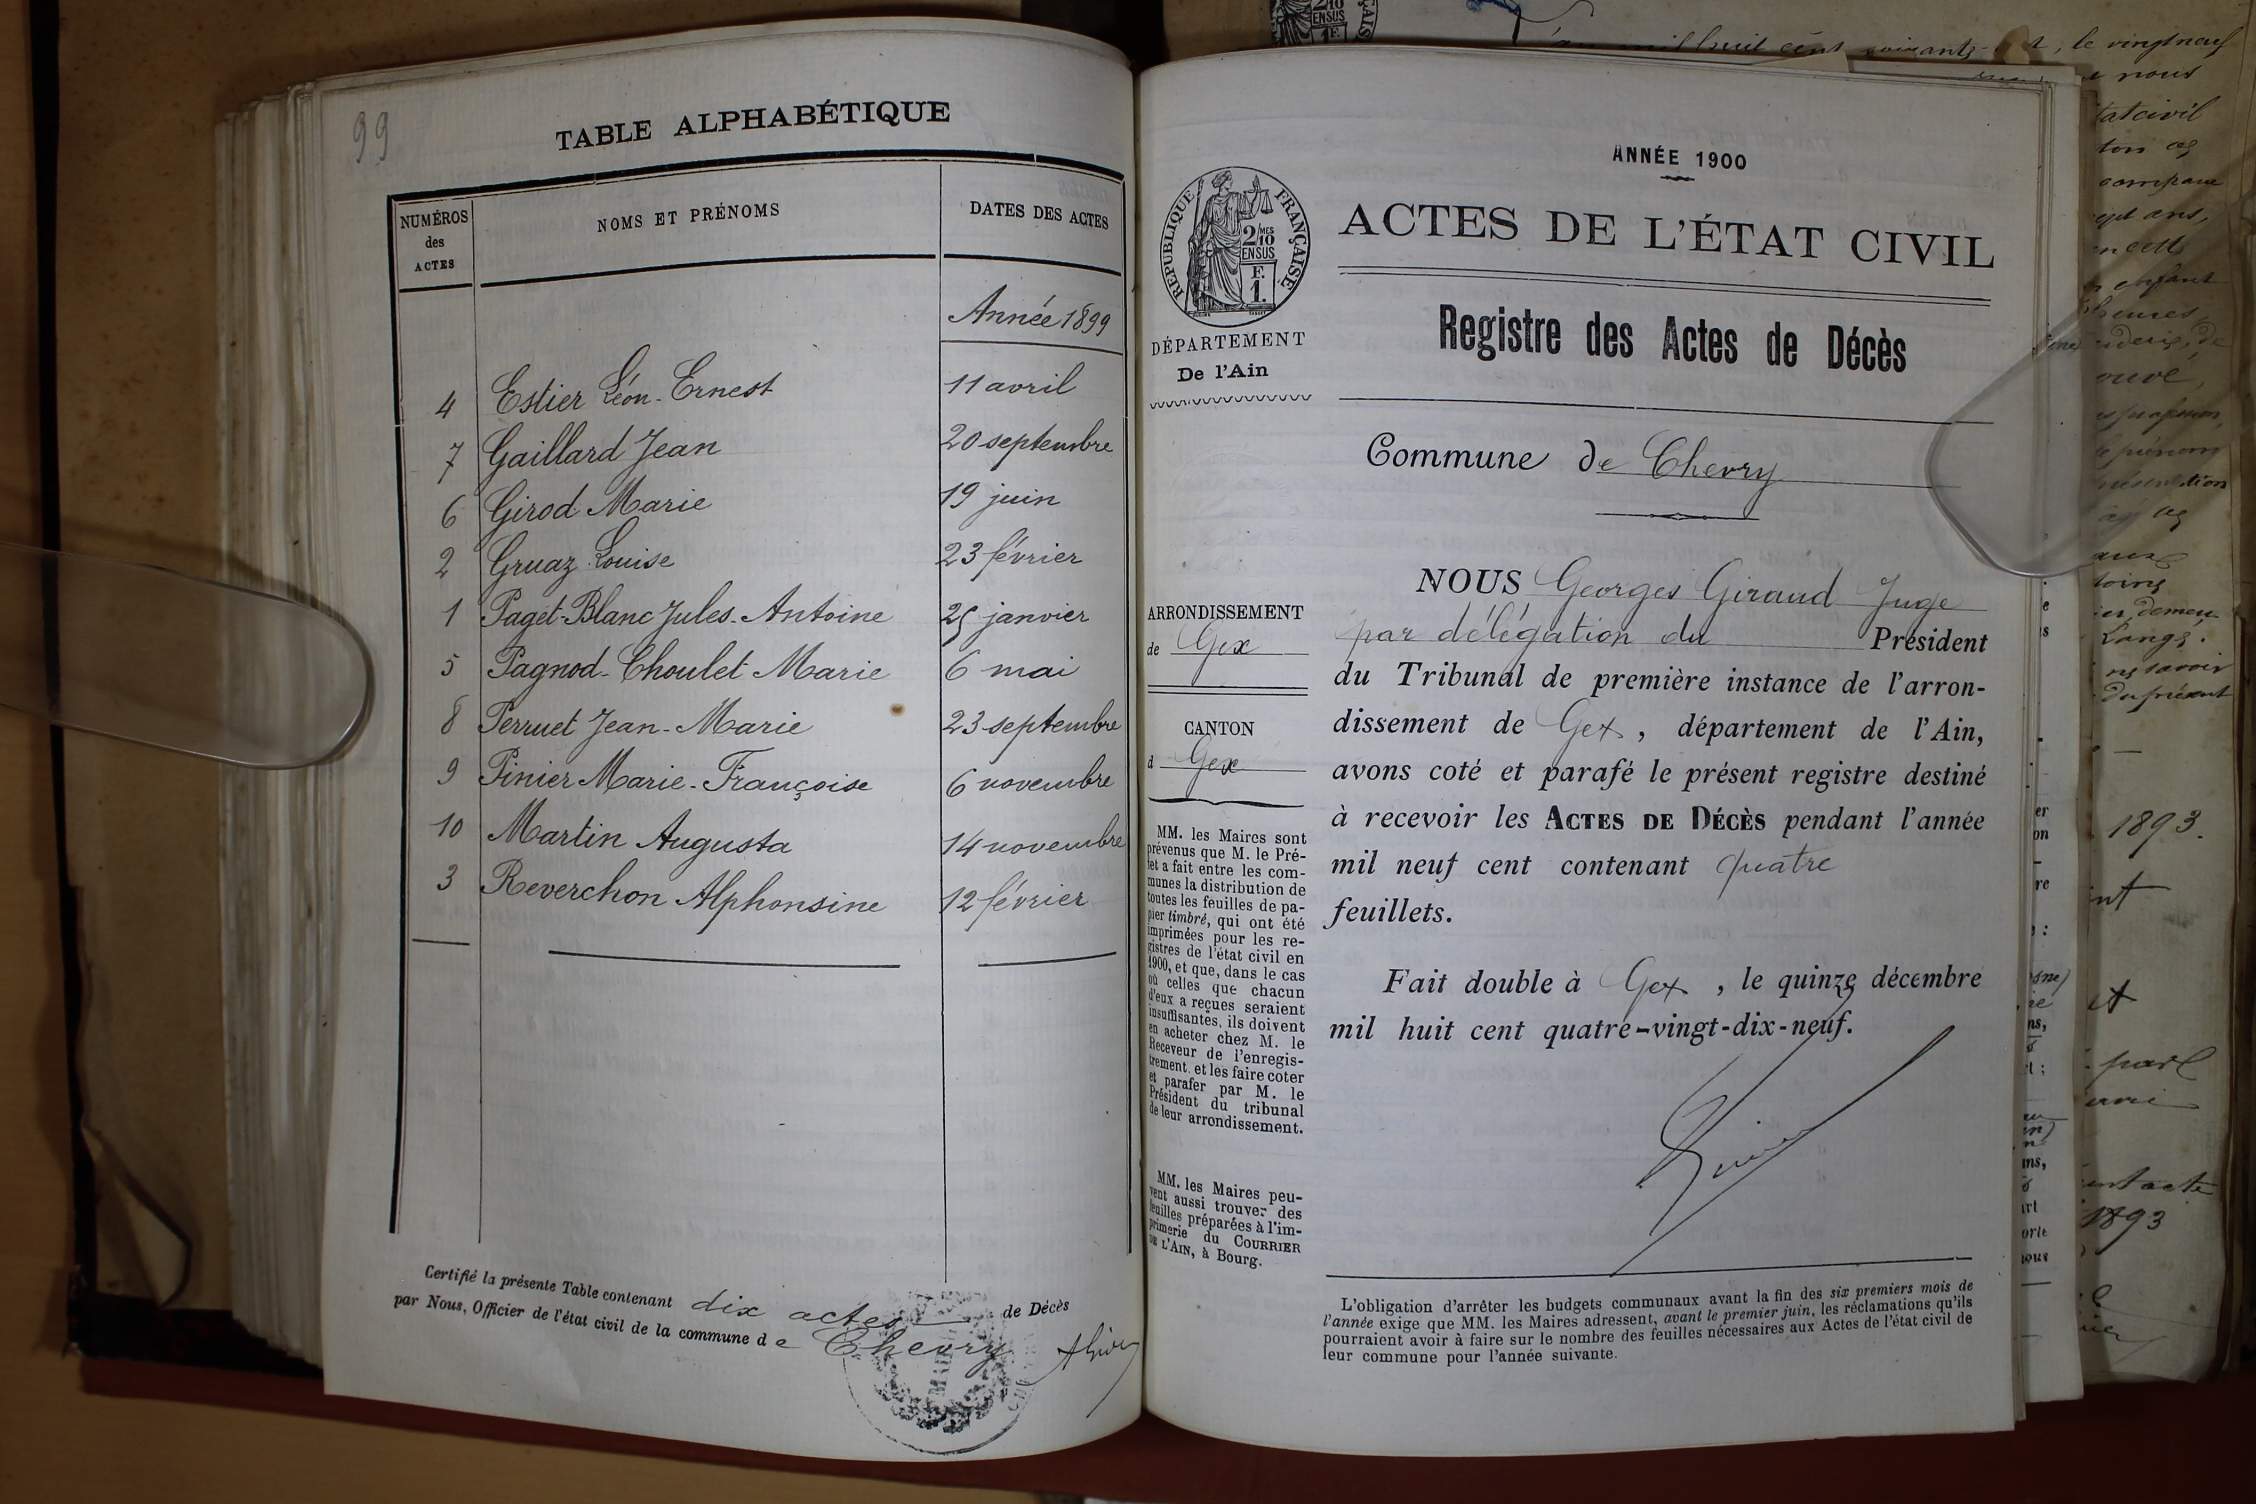 99
TABLE ALPHABÉTIQUE
NUMÉROS des ACTES
NOMS ET PRÉNOMS
DATES DES ACTES
Année 1899
4 Estier Léon-Ernest 11 avril
7 Gaillard Jean 20 septembre
6 Girod Marie 19 juin
2 Gruaz Louise 23 février
1 Paget-Blanc Jules-Antoine 25 janvier
5 Pagnod-Choulet Marie 6 mai
8 Perruet Jean-Marie 23 septembre
9 Pinier Marie-Françoise 6 novembre
10 Martin Augusta 14 novembre
3 Reverchon Alphonsine 12 février
Certifié la présente Table contenant dix actes de Décès
par Nous, Officier de l'état civil de la commune de Chevry
ANNÉE 1900
ACTES DE L'ÉTAT CIVIL
RÉPUBLIQUE FRANÇAISE
2/10 MES
EN SUS
F.
1.
DÉPARTEMENT
De l'Ain
Registre des Actes de Décès
Commune de Chevry
ARRONDISSEMENT
de Gex
CANTON
d Gex
MM. les Maires sont
prévenus que M. le Pré-
fet a fait entre les com-
munes la distribution de
toutes les feuilles de pa-
pier timbré, qui ont été
imprimées pour les re-
gistres de l'état civil en
1900, et que, dans le cas
où celles que chacun
d'eux a reçues seraient
insuffisantes, ils doivent
en acheter chez M. le
Receveur de l'enregis-
trement, et les faire coter
et parafer par M. le
Président du tribunal
de leur arrondissement.
MM. les Maires peu-
vent aussi trouver des
feuilles préparées à l'im-
primerie du COURRIER
DE L'AIN, à Bourg.
NOUS Georges Giraud Juge
par délégation du Président
du Tribunal de première instance de l'arron-
dissement de Gex, département de l'Ain,
avons coté et parafé le présent registre destiné
à recevoir les ACTES DE DÉCÈS pendant l'année
mil neuf cent contenant quatre
feuillets.
Fait double à Gex, le quinze décembre
mil huit cent quatre-vingt-dix-neuf.
L'obligation d'arrêter les budgets communaux avant la fin des six premiers mois de
l'année exige que MM. les Maires adressent, avant le premier juin, les réclamations qu'ils
pourraient avoir à faire sur le nombre des feuilles nécessaires aux Actes de l'état civil de
leur commune pour l'année suivante.
le vingt neuf
nous
1893.
1893